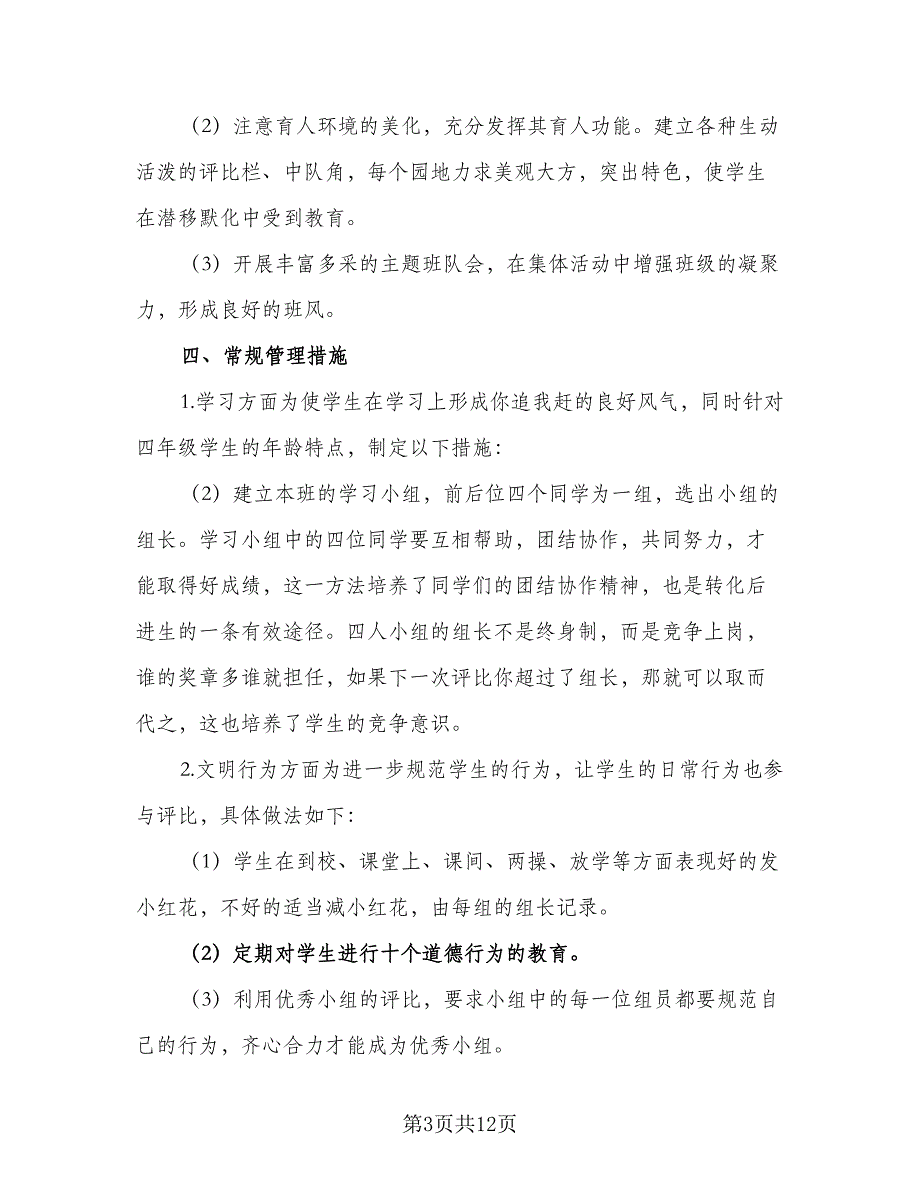 （2）注意育人环境的美化，充分发挥其育人功能。建立各种生动
活泼的评比栏、中队角，每个园地力求美观大方，突出特色，使学生
在潜移默化中受到教育。
（3）开展丰富多采的主题班队会，在集体活动中增强班级的凝聚
力，形成良好的班风。
四、常规管理措施
1.学习方面为使学生在学习上形成你追我赶的良好风气，同时针对
四年级学生的年龄特点，制定以下措施：
（2）建立本班的学习小组，前后位四个同学为一组，选出小组的
组长。学习小组中的四位同学要互相帮助，团结协作，共同努力，才
能取得好成绩，这一方法培养了同学们的团结协作精神，也是转化后
进生的一条有效途径。四人小组的组长不是终身制，而是竞争上岗，
谁的奖章多谁就担任，如果下一次评比你超过了组长，那就可以取而
代之，这也培养了学生的竞争意识。
2.文明行为方面为进一步规范学生的行为，让学生的日常行为也参
与评比，具体做法如下：
（1）学生在到校、课堂上、课间、两操、放学等方面表现好的发
小红花，不好的适当减小红花，由每组的组长记录。
（2）定期对学生进行十个道德行为的教育。
（3）利用优秀小组的评比，要求小组中的每一位组员都要规范自
己的行为，齐心合力才能成为优秀小组。
第3页共12页